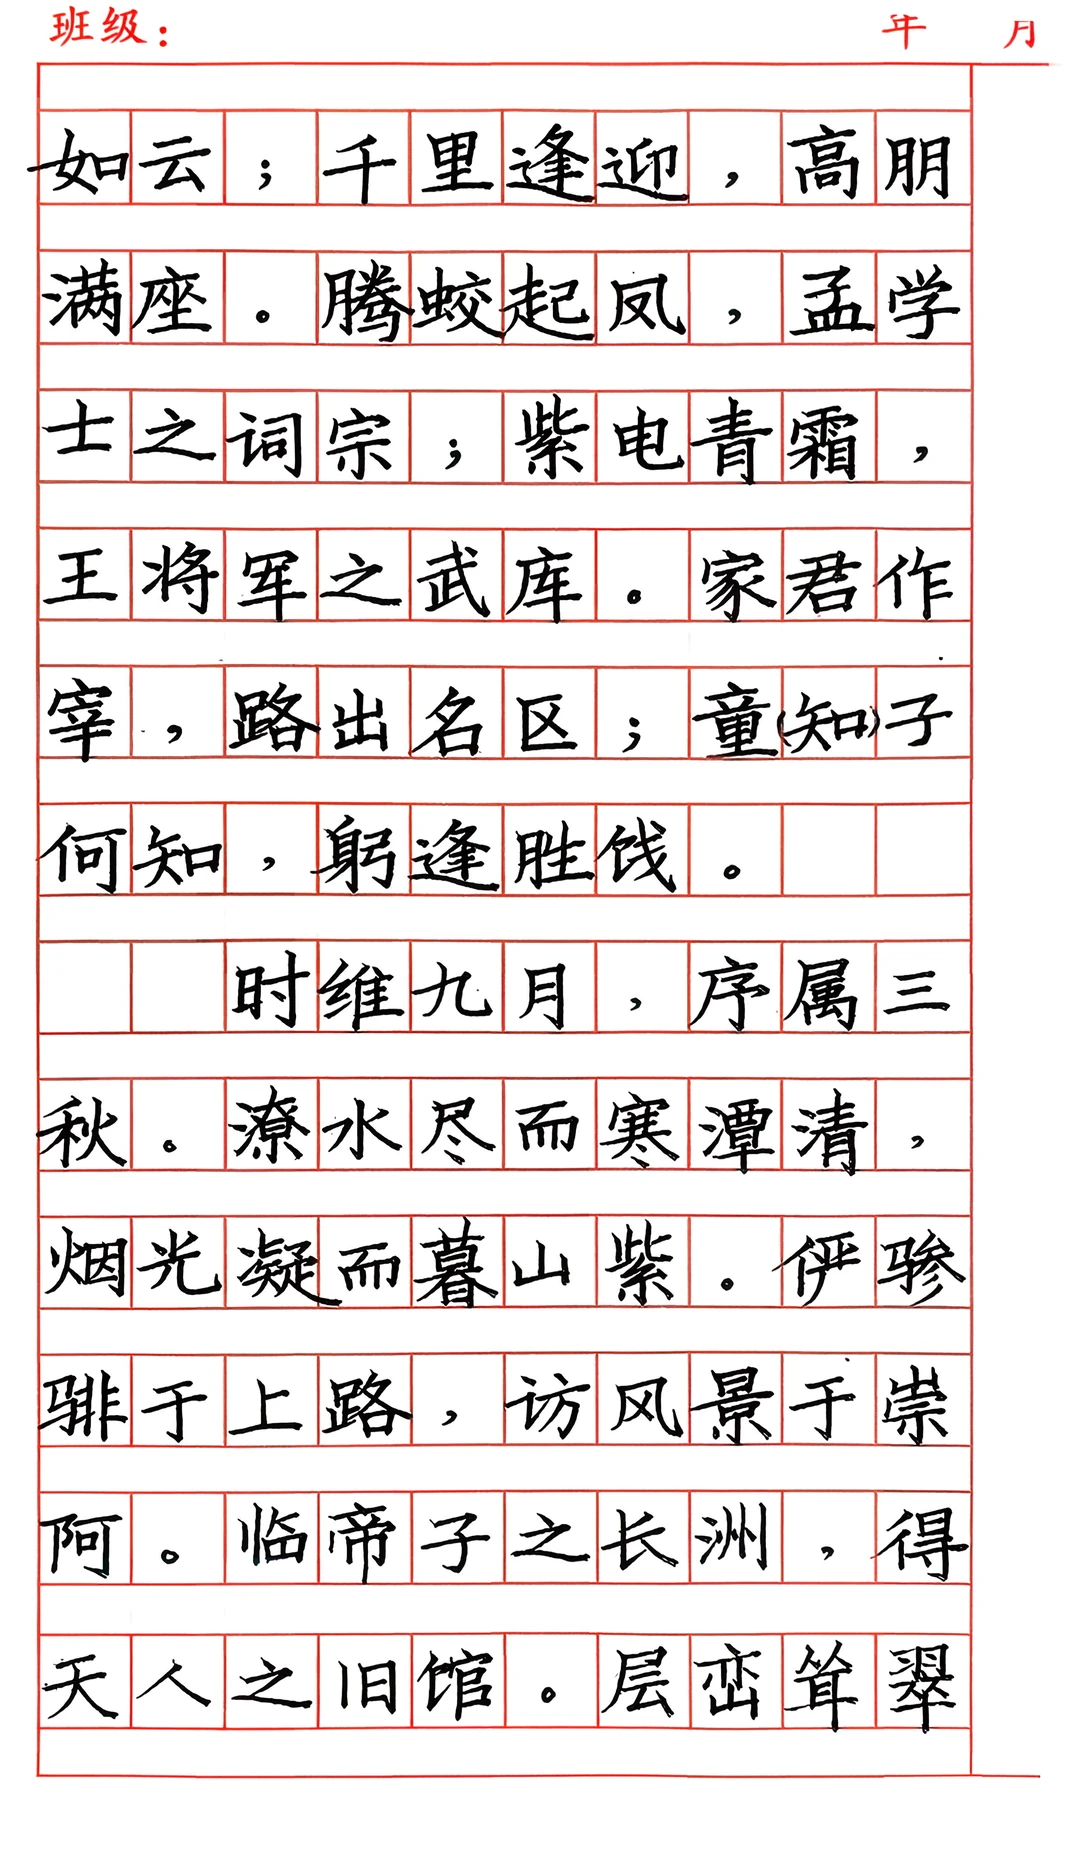 班级： 年 月
如云；千里逢迎，高朋
满座。腾蛟起凤，孟学
士之词宗；紫电青霜，
王将军之武库。家君作
宰，路出名区；童（知）子
何知，躬逢胜饯。
时维九月，序属三
秋。潦水尽而寒潭清，
烟光凝而暮山紫。俨骖
騑于上路，访风景于崇
阿。临帝子之长洲，得
天人之旧馆。层峦耸翠